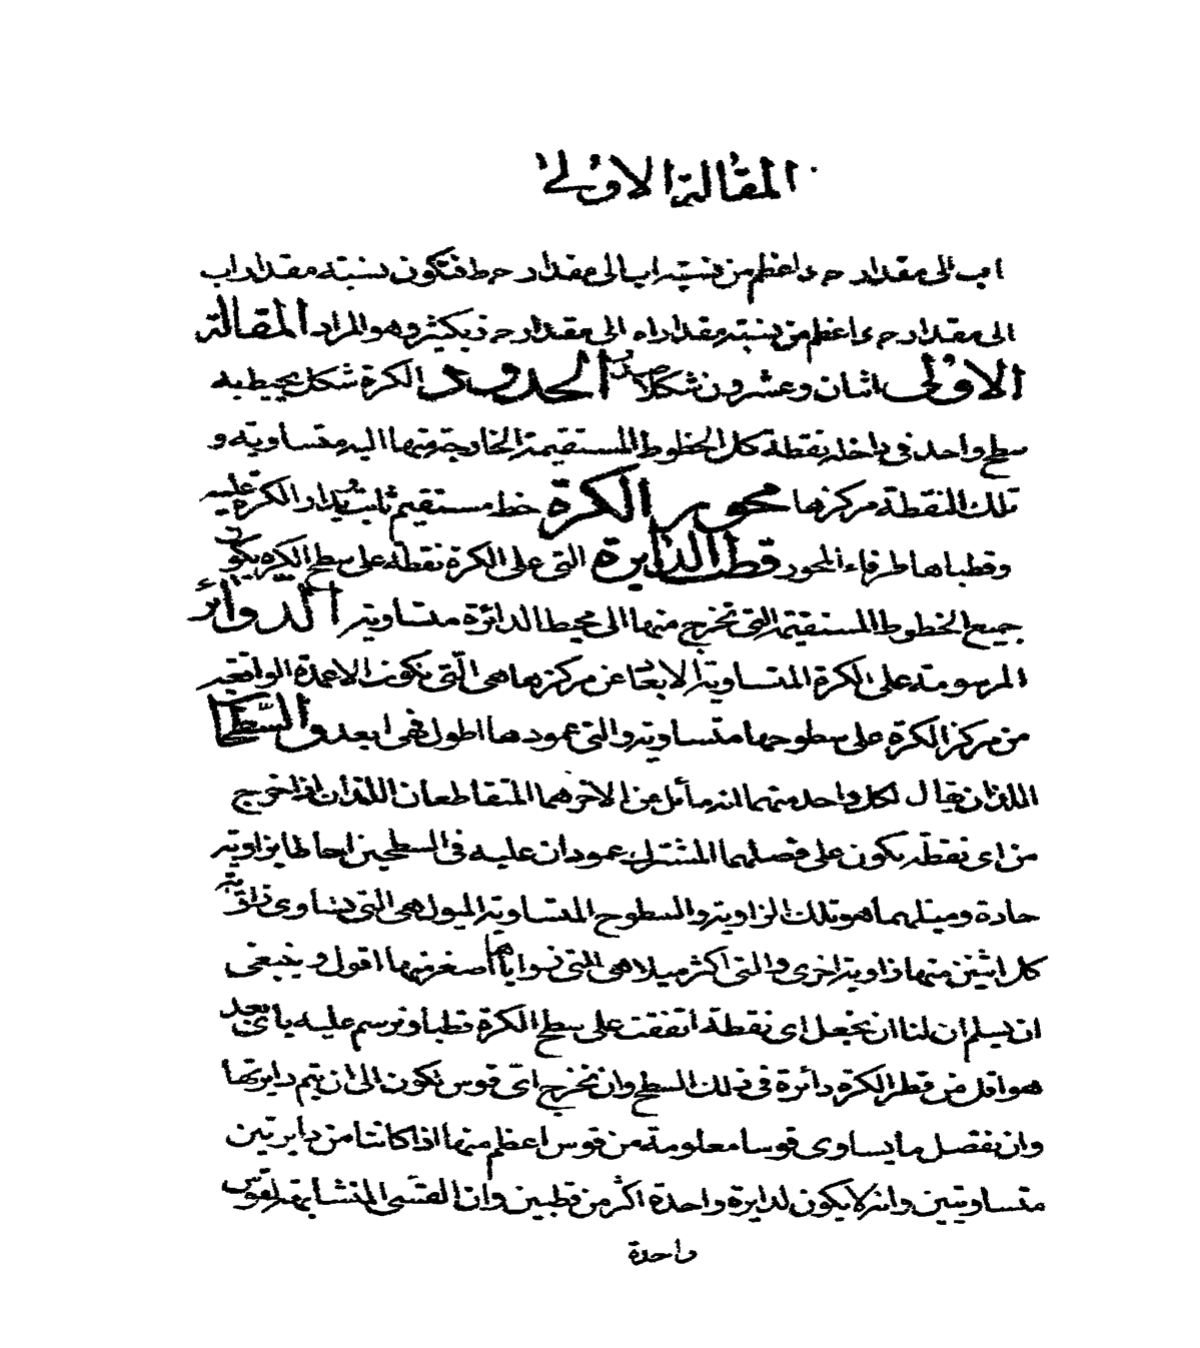 المقالة الاولى
اب الى مقدار حـ ء اعظم من نسبة اب الى مقدار حـ ط فتكون نسبة مقدار اب
الى مقدار حـ ء اعظم من نسبة مقدار اه الى مقدار حـ ز بكثير وهو المراد المقالة
الاولى اثنان وعشرون شكلا الحدود الكرة شكل يحيط به
سطح واحد فى داخله نقطة كل الخطوط المستقيمة الخارجة منها اليه متساوية و
تلك النقطة مركزها محور الكرة خط مستقيم ثابت يدار الكرة عليه
وقطباها طرفاء المحور قطب الدايرة التى على الكرة نقطة على سطح الكره يكون
جميع الخطوط المستقيمة التى تخرج منها الى محيط الدائرة متساوية الدوائر
المرسومة على الكرة المتساوية الابعاد عن مركزها هى الّتى تكون الاعمدة الواقعة
من مركز الكرة على سطوحها متساوية والتى عمودها اطول فهى ابعد والسّطحا
اللذان يقال لكل واحد منهما انه مائل عن الاخر هما المتقاطعان اللذان اذا خرج
من اى نقطة يكون على فصلهما المشترك عمودان عليه فى السطحين احاطا بزاوية
حادة وميلهما هو تلك الزاوية والسطوح المتساوية الميول هى التى يساوى زاوية
كل اثنين منها زاوية اخرى والتى اكثر ميلا هى التى زواياها اصغر منها اقول وينبغى
ان يسلم ان لنا ان نجعل اى نقطة اتفقت على سطح الكرة قطبا ونرسم عليه باى بعد
هو اقل من قطر الكرة دائرة فى ذلك السطح وان نخرج اىّ قوس تكون الى ان يتم دايرتها
وان نفصل ما يساوى قوسا معلومة من قوس اعظم منها اذا كانتا من دايرتين
متساويتين وانه لا يكون لدايرة واحدة اكثر من قطبين وان القسّى المتشابهة لقوس
واحدة